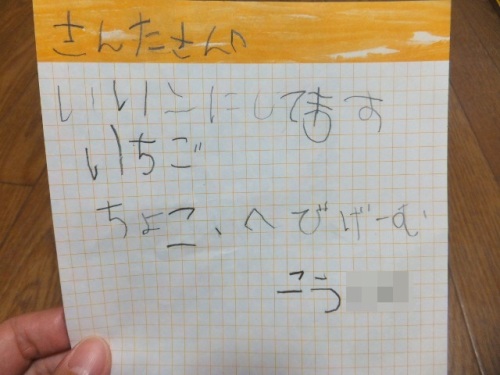 さんたさんへ
いいこにしてます
いちご
ちょこ、へびげーむ
こう